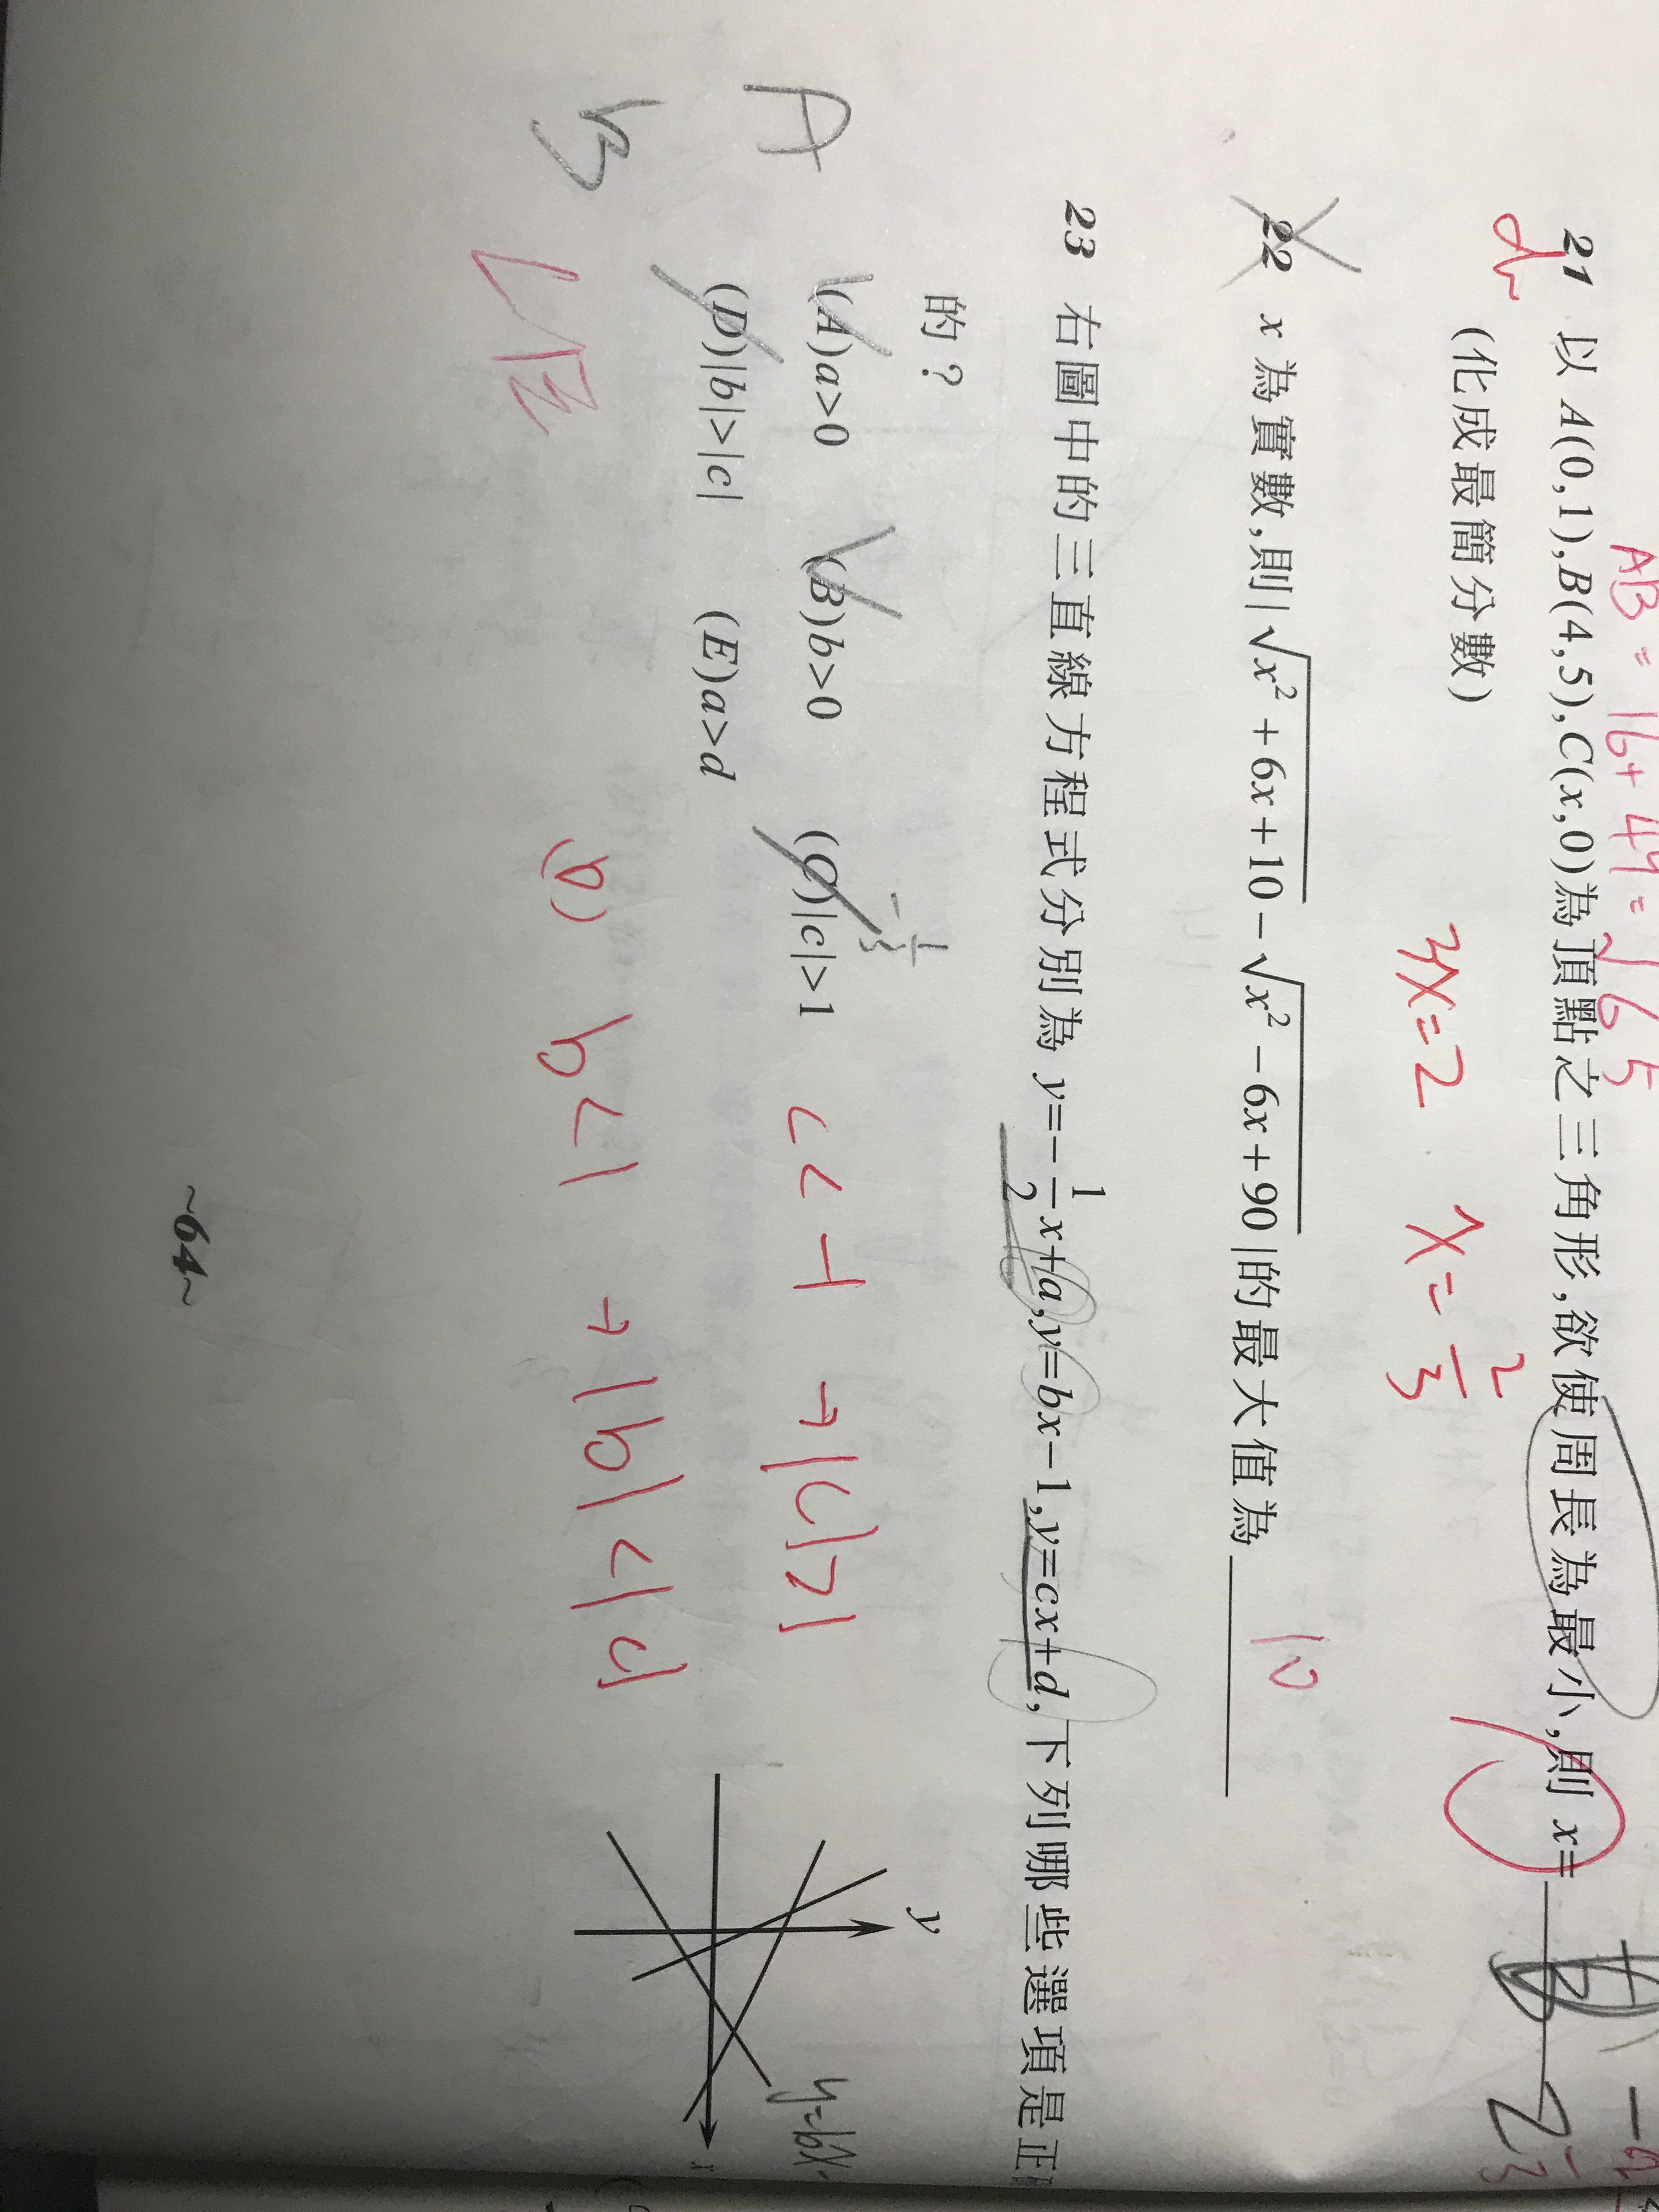 AB = 16+49 = √65
21 以 A(0,1),B(4,5),C(x,0)為頂點之三角形,欲使周長為最小,則 x=
(化成最簡分數)
3x=2 x=2/3
22 x 為實數,則|√(x²+6x+10)-√(x²-6x+90)|的最大值為
10
23 右圖中的三直線方程式分別為 y=-1/2x+a,y=bx-1,y=cx+d,下列哪些選項是正
的?
(A)a>0 (B)b>0 (C)|c|>1
(D)|b|>|c| (E)a>d
A
c<-1 → |c|>1
(D) b<1 → |b|<|c|
y
y=bx-
~64~